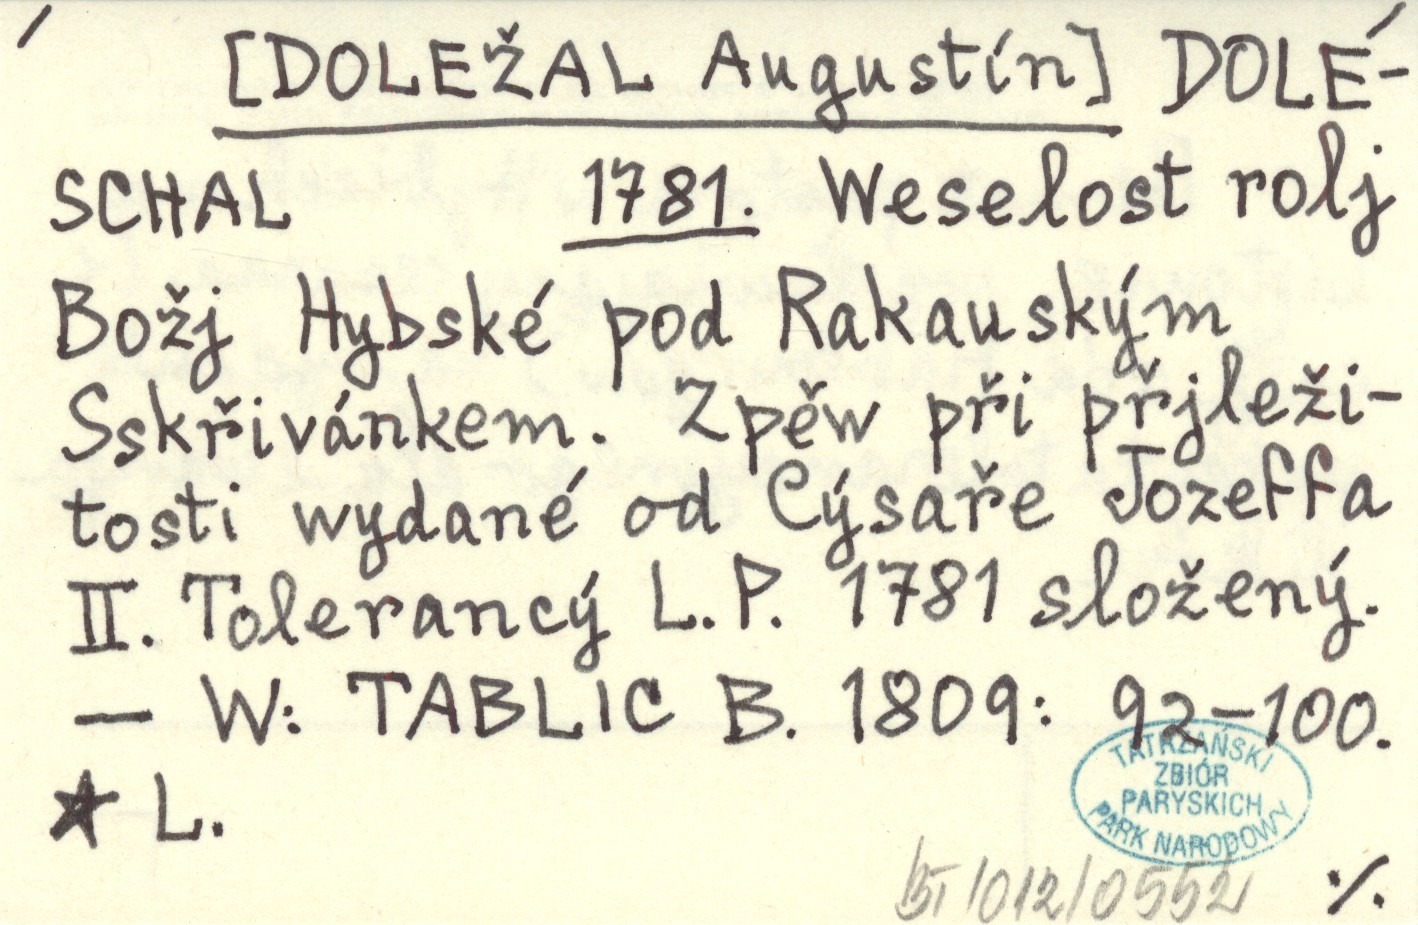 [DOLEŽAL Augustín] DOLÉ-
SCHAL 1781. Weselost rolj
Božj Hybské pod Rakauským
Sskřivánkem. Zpěw při přjleži-
tosti wydané od Cýsaře Jozeffa
II. Tolerancý L.P. 1781 složený.
— W: TABLIC B. 1809: 92-100.
★ L.
TATRZAŃSKI
ZBIÓR
PARYSKICH
PARK NARODOWY
BT/012/0552 ·/.